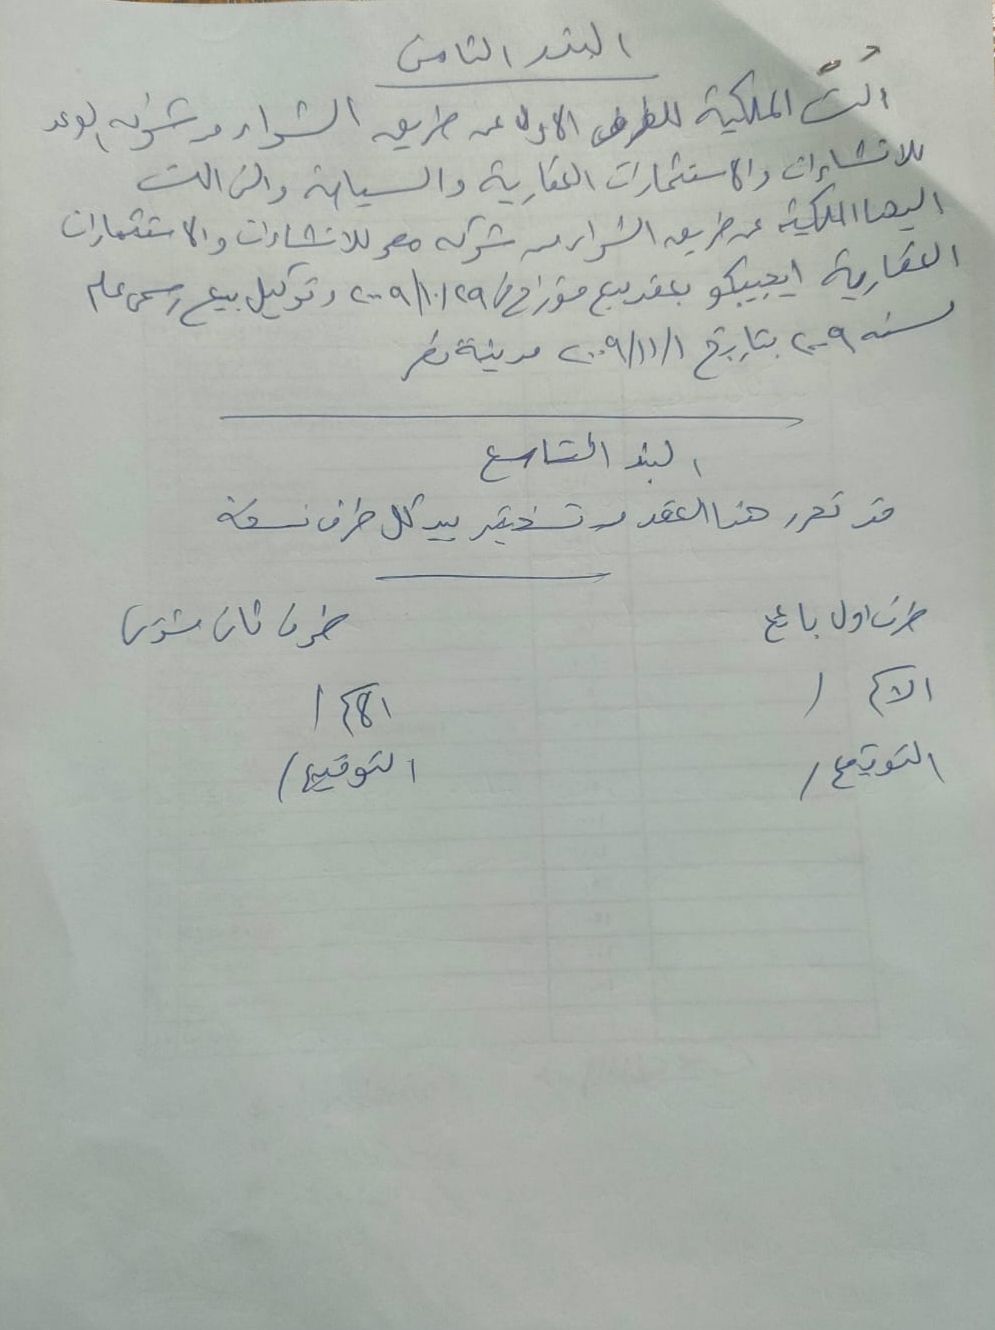 البند الثامن
الت الملكية للطرف الاول عن طريق الشراء من شركه الوعد
للانشاءات والاستثمارات العقارية والسياحة والتى الت
اليها الملكية عن طريق الشراء من شركه مصر للانشاءات والاستثمارات
العقارية ايجيبكو بعقد بيع مؤرخ ٢٠٠٩/١٠/٢٩ وتوكيل بيع رسمى عام
لسنه ٢٠٠٩ بتاريخ ٢٠٠٩/١١/١ مدينة نصر
البند التاسع
قد تحرر هذا العقد من نسختين بيد كل طرف نسخة
طرف اول بائع
طرف ثانى مشترى
الاسم /
الاسم /
التوقيع /
التوقيع /